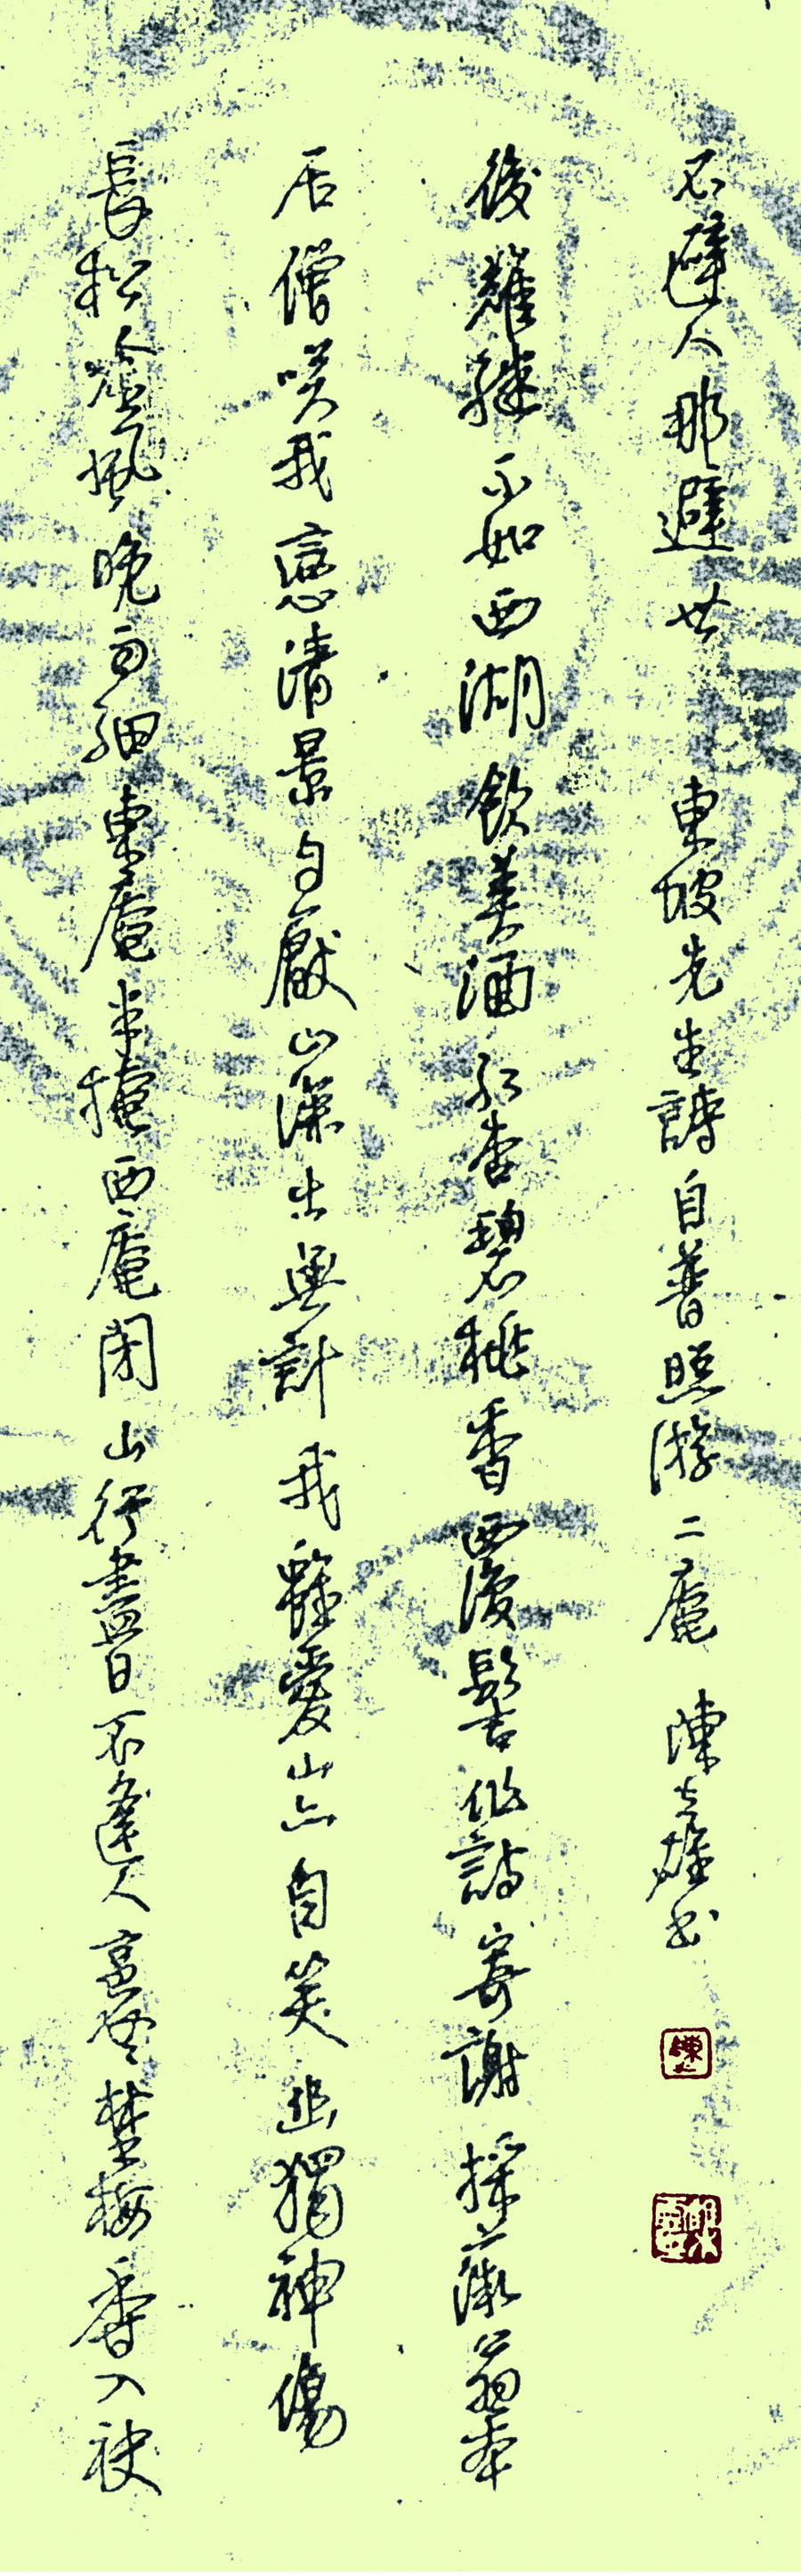 長松吟風晚雨細東庵半掩西庵閉山行盡日不逢人裛裛埜梅香入袂
居僧咲我戀清景自厭山深出無計我雖愛山亦自笑幽獨神傷
後難繼不如西湖飲美酒紅杏碧桃香覆髻作詩寄謝採薇翁本
不避人那避世 東坡先生詩自普照游二庵 陳雄书